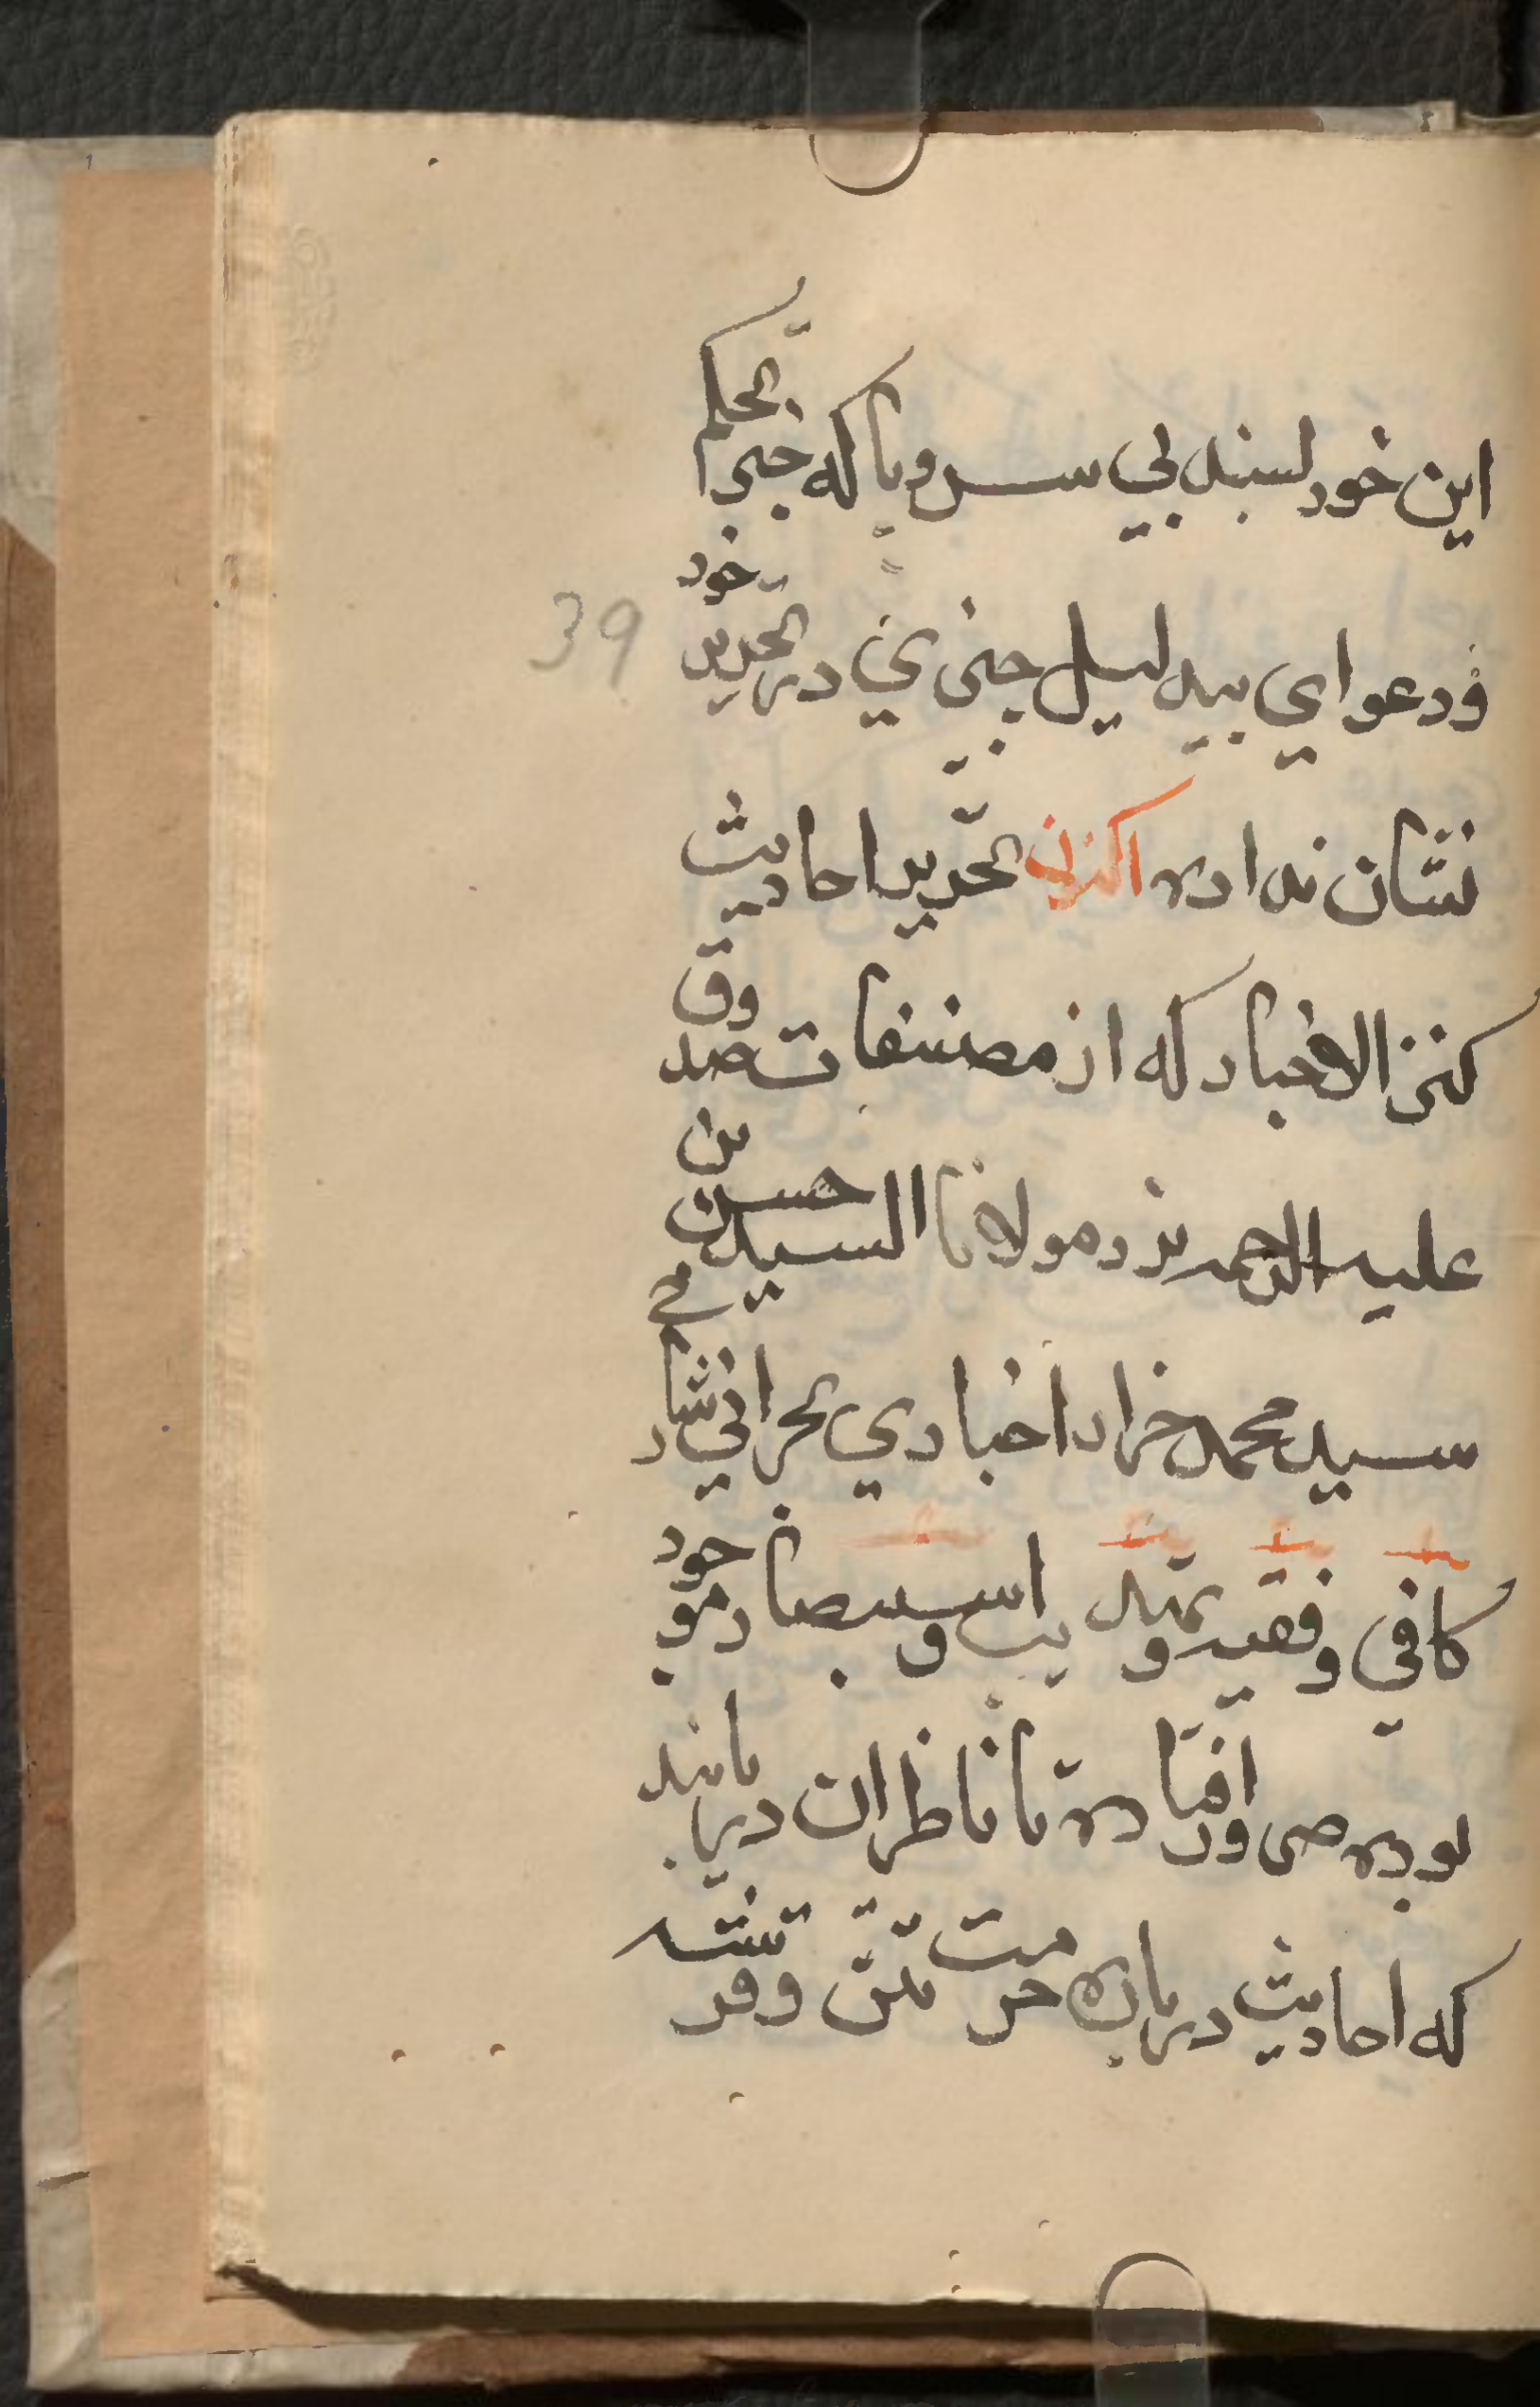 این خود لسند بی سر و پا که جز تحکم
و دعوای بیدلیل چیزی در تحدید خود
39
نشان نداده اکنون تحدید احادیث
کنز الاخبار که از مصنفات صدوق
علیه الرحمه نزد مولانا السید حسن بن
سید محمد خراد اخباری بحرانی شارح
کافی و فقیه و تهذیب و استبصار موجود
بوده می اوفتاده تا ناظران دریابند
که احادیث درباره حرمت تتن و قرتشه